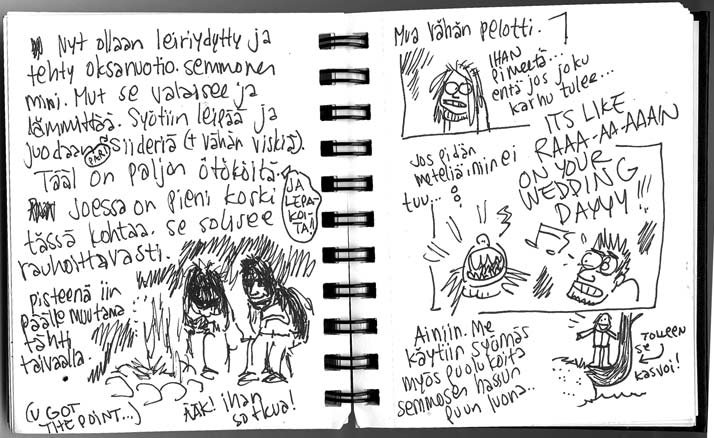 Nyt ollaan leiriydytty ja
tehty oksanuotio. semmonen
mini. Mut se valaisee ja
lämmittää. Syötiin leipää ja
juodaan PARI siideriä (+ vähän viskiä).
Tääl on paljon ötököitä.
JA
LEPA-
KOI-
TA!!
Joessa on pieni koski
tässä kohtaa. se solisee
rauhoittavasti.
pisteenä iin
päälle muutama
tähti
taivaalla.
(U GOT
THE POINT...)
ÄÄK! ihan
sotkua!
Mua vähän pelotti.
IHAN
pimeetä...
entä jos joku
karhu tulee...
Jos pidän
meteliä, nin ei
tuu...
ITS LIKE
RAAA-AA-AAAIN
ON YOUR
WEDDING
DAYYY!!!
Ainiin. Me
käytiin syömäs
myös puolukoita
semmosen hassun
puun luona..
TOLLEEN
SE
KASVOI!